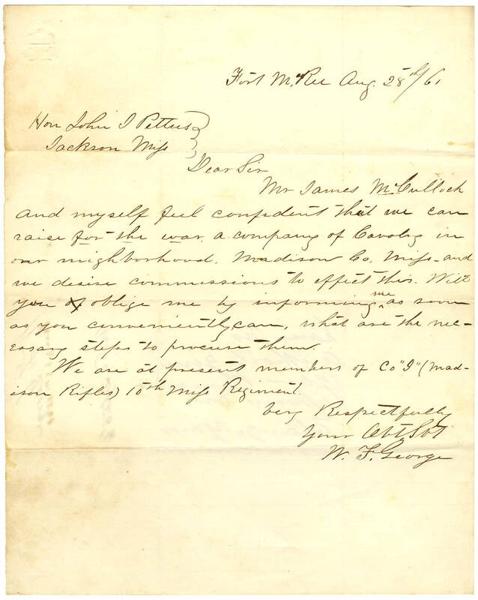 Fort McRee Aug. 28th/61
Hon John J Pettus
Jackson Miss
Dear Sir
Mr James McCulloch
and myself feel confident that we can
raise for the war a company of Cavalry in
our neighborhood. Madison Co. Miss. and
we desire commissions to effect this. Will
you oblige me by informing me as soon
as you conveniently can, what are the nec-
essary steps to procure them.
We are at present members of Co "I" (Mad-
ison Rifles) 10th Miss Regiment.
Very Respectfully
Your Obt Svt
W. F. George